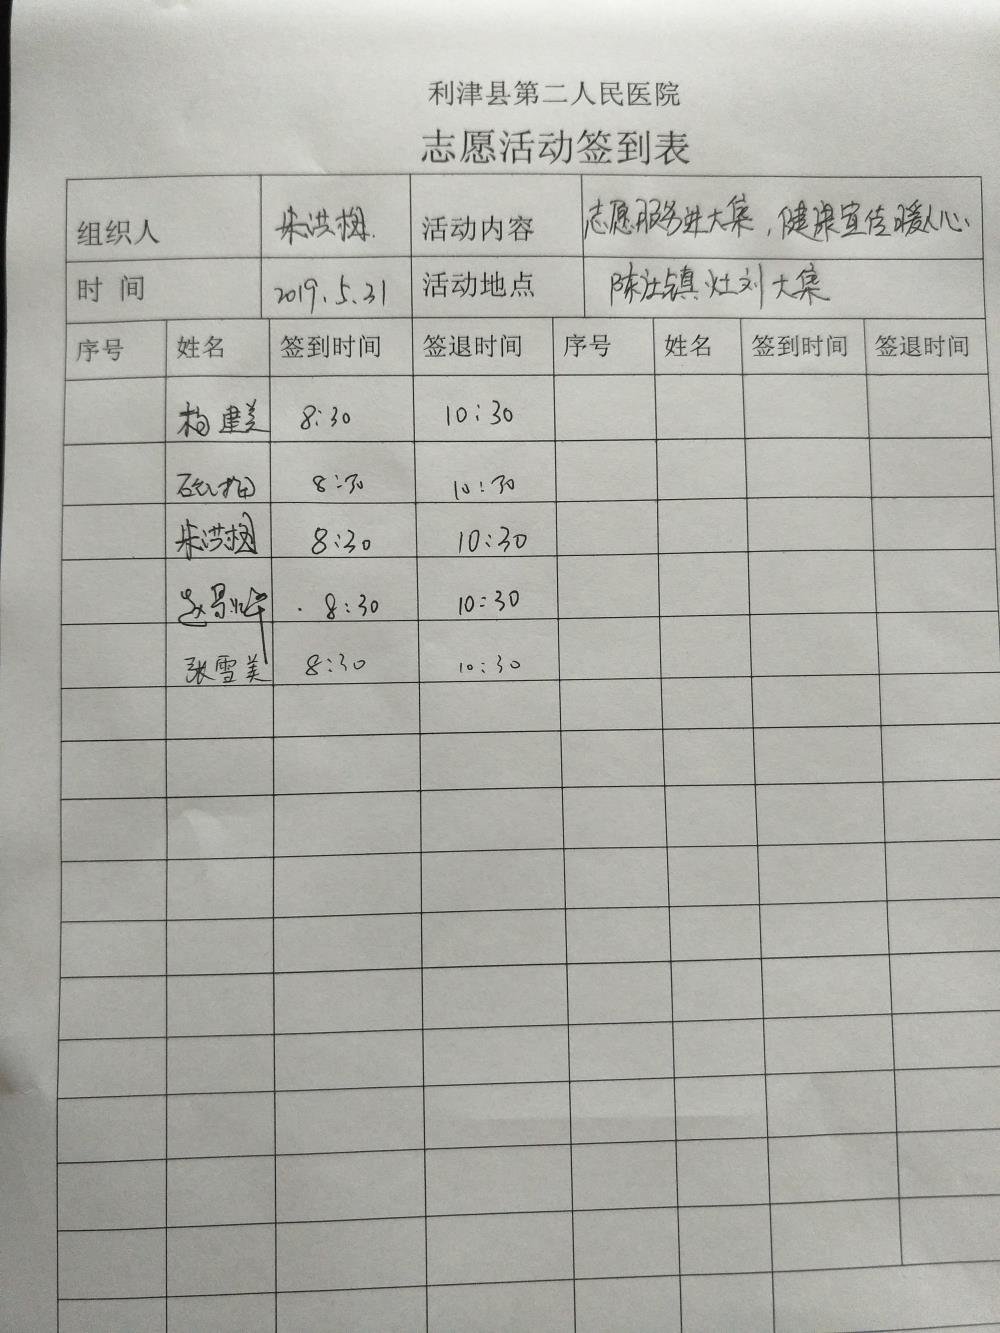 利津县第二人民医院
志愿活动签到表
组织人 朱洪梅. 活动内容 志愿服务进大集,健康宣传暖人心.
时 间 2019.5.31 活动地点 陈庄镇灶刘大集
序号 姓名 签到时间 签退时间 序号 姓名 签到时间 签退时间
杨建美 8:30 10:30
8:30 10:30
朱洪梅 8:30 10:30
8:30 10:30
张雪美 8:30 10:30